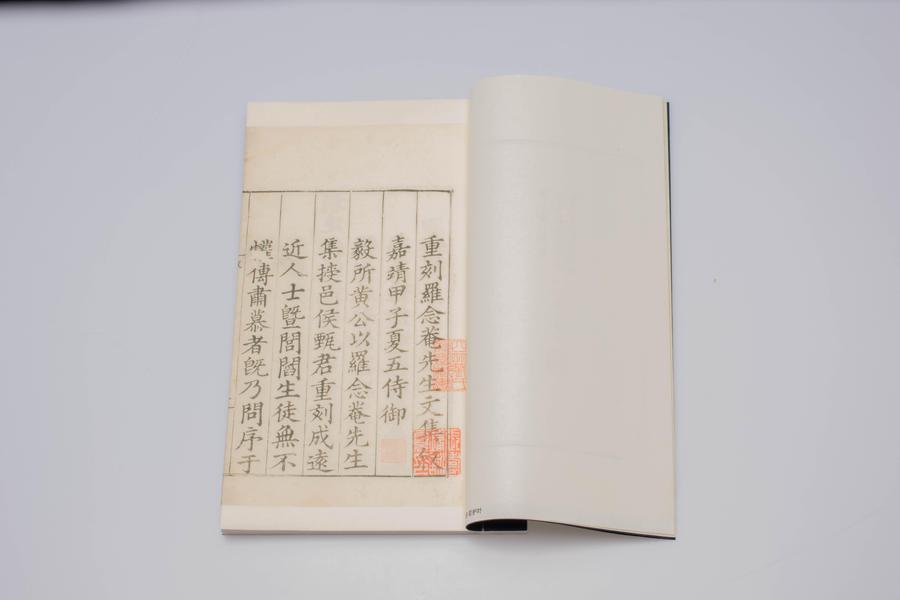 重刻羅念菴先生文集敘
嘉靖甲子夏五侍御
毅所黄公以羅念菴先生
集授邑侯甄君重刻成遠
近人士曁閭閻生徒無不
懽傳肅慕者旣乃問序于